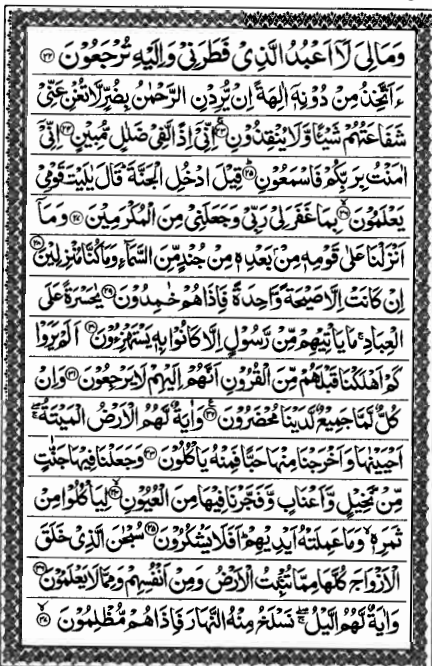 وَمَا لِىَ لَاۤ اَعۡبُدُ الَّذِىۡ فَطَرَنِىۡ وَاِلَيۡهِ تُرۡجَعُوۡنَ ۲۲
ءَاَتَّخِذُ مِنۡ دُوۡنِهٖۤ اٰلِهَةً اِنۡ يُّرِدۡنِ الرَّحۡمٰنُ بِضُرٍّ لَّا تُغۡنِ عَنِّىۡ
شَفَاعَتُهُمۡ شَيۡـًٔا وَّلَا يُنۡقِذُوۡنِ ۲۳ اِنِّىۡۤ اِذًا لَّفِىۡ ضَلٰلٍ مُّبِيۡنٍ ۲۴ اِنِّىۡۤ
اٰمَنۡتُ بِرَبِّكُمۡ فَاسۡمَعُوۡنِ ۲۵ قِيۡلَ ادۡخُلِ الۡجَنَّةَ ؕ قَالَ يٰلَيۡتَ قَوۡمِىۡ
يَعۡلَمُوۡنَ ۲۶ بِمَا غَفَرَ لِىۡ رَبِّىۡ وَجَعَلَنِىۡ مِنَ الۡمُكۡرَمِيۡنَ ۲۷ وَمَاۤ
اَنۡزَلۡنَا عَلٰى قَوۡمِهٖ مِنۡۢ بَعۡدِهٖ مِنۡ جُنۡدٍ مِّنَ السَّمَآءِ وَمَا كُنَّا مُنۡزِلِيۡنَ ۲۸
اِنۡ كَانَتۡ اِلَّا صَيۡحَةً وَّاحِدَةً فَاِذَا هُمۡ خٰمِدُوۡنَ ۲۹ يٰحَسۡرَةً عَلَى
الۡعِبَادِ ۚ مَا يَاۡتِيۡهِمۡ مِّنۡ رَّسُوۡلٍ اِلَّا كَانُوۡا بِهٖ يَسۡتَهۡزِءُوۡنَ ۳۰ اَلَمۡ يَرَوۡا
كَمۡ اَهۡلَكۡنَا قَبۡلَهُمۡ مِّنَ الۡقُرُوۡنِ اَنَّهُمۡ اِلَيۡهِمۡ لَا يَرۡجِعُوۡنَ ۳۱ وَاِنۡ
كُلٌّ لَّمَّا جَمِيۡعٌ لَّدَيۡنَا مُحۡضَرُوۡنَ ۳۲ وَاٰيَةٌ لَّهُمُ الۡاَرۡضُ الۡمَيۡتَةُ ۖۚ
اَحۡيَيۡنٰهَا وَاَخۡرَجۡنَا مِنۡهَا حَبًّا فَمِنۡهُ يَاۡكُلُوۡنَ ۳۳ وَجَعَلۡنَا فِيۡهَا جَنّٰتٍ
مِّنۡ نَّخِيۡلٍ وَّاَعۡنَابٍ وَّفَجَّرۡنَا فِيۡهَا مِنَ الۡعُيُوۡنِ ۳۴ لِيَاۡكُلُوۡا مِنۡ
ثَمَرِهٖ ۙ وَمَا عَمِلَتۡهُ اَيۡدِيۡهِمۡ ؕ اَفَلَا يَشۡكُرُوۡنَ ۳۵ سُبۡحٰنَ الَّذِىۡ خَلَقَ
الۡاَزۡوَاجَ كُلَّهَا مِمَّا تُنۡۢبِتُ الۡاَرۡضُ وَمِنۡ اَنۡفُسِهِمۡ وَمِمَّا لَا يَعۡلَمُوۡنَ ۳۶
وَاٰيَةٌ لَّهُمُ الَّيۡلُ ۖۚ نَسۡلَخُ مِنۡهُ النَّهَارَ فَاِذَا هُمۡ مُّظۡلِمُوۡنَ ۳۷